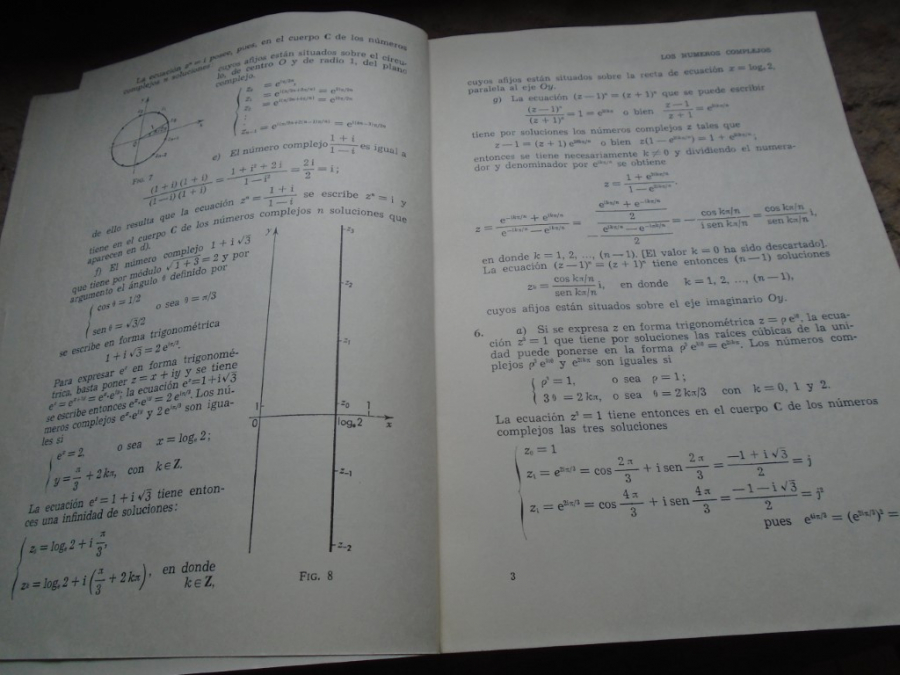 La ecuación zⁿ = i posee, pues, en el cuerpo C de los números
complejos n soluciones cuyos afijos están situados sobre el círcu-
lo, de centro O y de radio 1, del plano
complejo.
FIG. 7
e) El número complejo (1 + i)/(1 − i) es igual a
(1 + i)(1 + i)/(1 − i)(1 + i) = (1 + i² + 2i)/(1 − i²) = 2i/2 = i;
de ello resulta que la ecuación zⁿ = (1 + i)/(1 − i) se escribe zⁿ = i y
tiene en el cuerpo C de los números complejos n soluciones que
aparecen en d).
f) El número complejo 1 + i√3
que tiene por módulo √1 + 3 = 2 y por
argumento el ángulo θ definido por
cos θ = 1/2
o sea θ = π/3
sen θ = √3/2
se escribe en forma trigonométrica
1 + i√3 = 2e^{iπ/3}.
Para expresar eᶻ en forma trigonomé-
trica, basta poner z = x + iy y se tiene
eᶻ = e^{x+iy} = eˣ·e^{iy}; la ecuación eᶻ = 1 + i√3
se escribe entonces eˣ·e^{iy} = 2e^{iπ/3}. Los nú-
meros complejos eˣ·e^{iy} y 2e^{iπ/3} son igua-
les si
eˣ = 2, o sea x = logₑ 2;
y = π/3 + 2kπ, con k∈Z.
La ecuación eᶻ = 1 + i√3 tiene enton-
ces una infinidad de soluciones:
= logₑ 2 + i π/3,
zₖ = logₑ 2 + i(π/3 + 2kπ), en donde
k∈Z,
y
z₃
z₂
z₁
1
z₀
1
0
logₑ 2
x
z₋₁
z₋₂
FIG. 8
LOS NUMEROS COMPLEJOS
cuyos afijos están situados sobre la recta de ecuación x = logₑ 2,
paralela al eje Oy.
g) La ecuación (z − 1)ⁿ = (z + 1)ⁿ que se puede escribir
(z − 1)ⁿ/(z + 1)ⁿ = 1 = e^{2ikπ} o bien (z − 1)/(z + 1) = e^{2ikπ/n}
tiene por soluciones los números complejos z tales que
z − 1 = (z + 1) e^{2ikπ/n} o bien z(1 − e^{2ikπ/n}) = 1 + e^{2ikπ/n};
entonces se tiene necesariamente k ≠ 0 y dividiendo el numera-
dor y denominador por e^{ikπ/n} se obtiene
z = (1 + e^{2ikπ/n})/(1 − e^{2ikπ/n}).
z = (e^{−ikπ/n} + e^{ikπ/n})/(e^{−ikπ/n} − e^{ikπ/n}) = − ((e^{ikπ/n} + e^{−ikπ/n})/2)/((e^{ikπ/n} − e^{−ikπ/n})/2) = − (cos kπ/n)/(i sen kπ/n) = (cos kπ/n)/(sen kπ/n) i,
en donde k = 1, 2, ..., (n − 1). [El valor k = 0 ha sido descartado].
La ecuación (z − 1)ⁿ = (z + 1)ⁿ tiene entonces (n − 1) soluciones
zₖ = (cos kπ/n)/(sen kπ/n) i, en donde k = 1, 2, ..., (n − 1),
cuyos afijos están situados sobre el eje imaginario Oy.
6. a) Si se expresa z en forma trigonométrica z = ρ e^{iθ}, la ecua-
ción z³ = 1 que tiene por soluciones las raíces cúbicas de la uni-
dad puede ponerse en la forma ρ³ e^{3iθ} = e^{2ikπ}. Los números com-
plejos ρ³ e^{3iθ} y e^{2ikπ} son iguales si
ρ³ = 1, o sea ρ = 1;
3θ = 2kπ, o sea θ = 2kπ/3 con k = 0, 1 y 2.
La ecuación z³ = 1 tiene entonces en el cuerpo C de los números
complejos las tres soluciones
z₀ = 1
z₁ = e^{2iπ/3} = cos 2π/3 + i sen 2π/3 = (−1 + i√3)/2 = j
= cos 4π/3 + i sen 4π/3 = (−1 − i√3)/2 = j²
pues e^{4iπ/3} = (e^{2iπ/3})² =
3